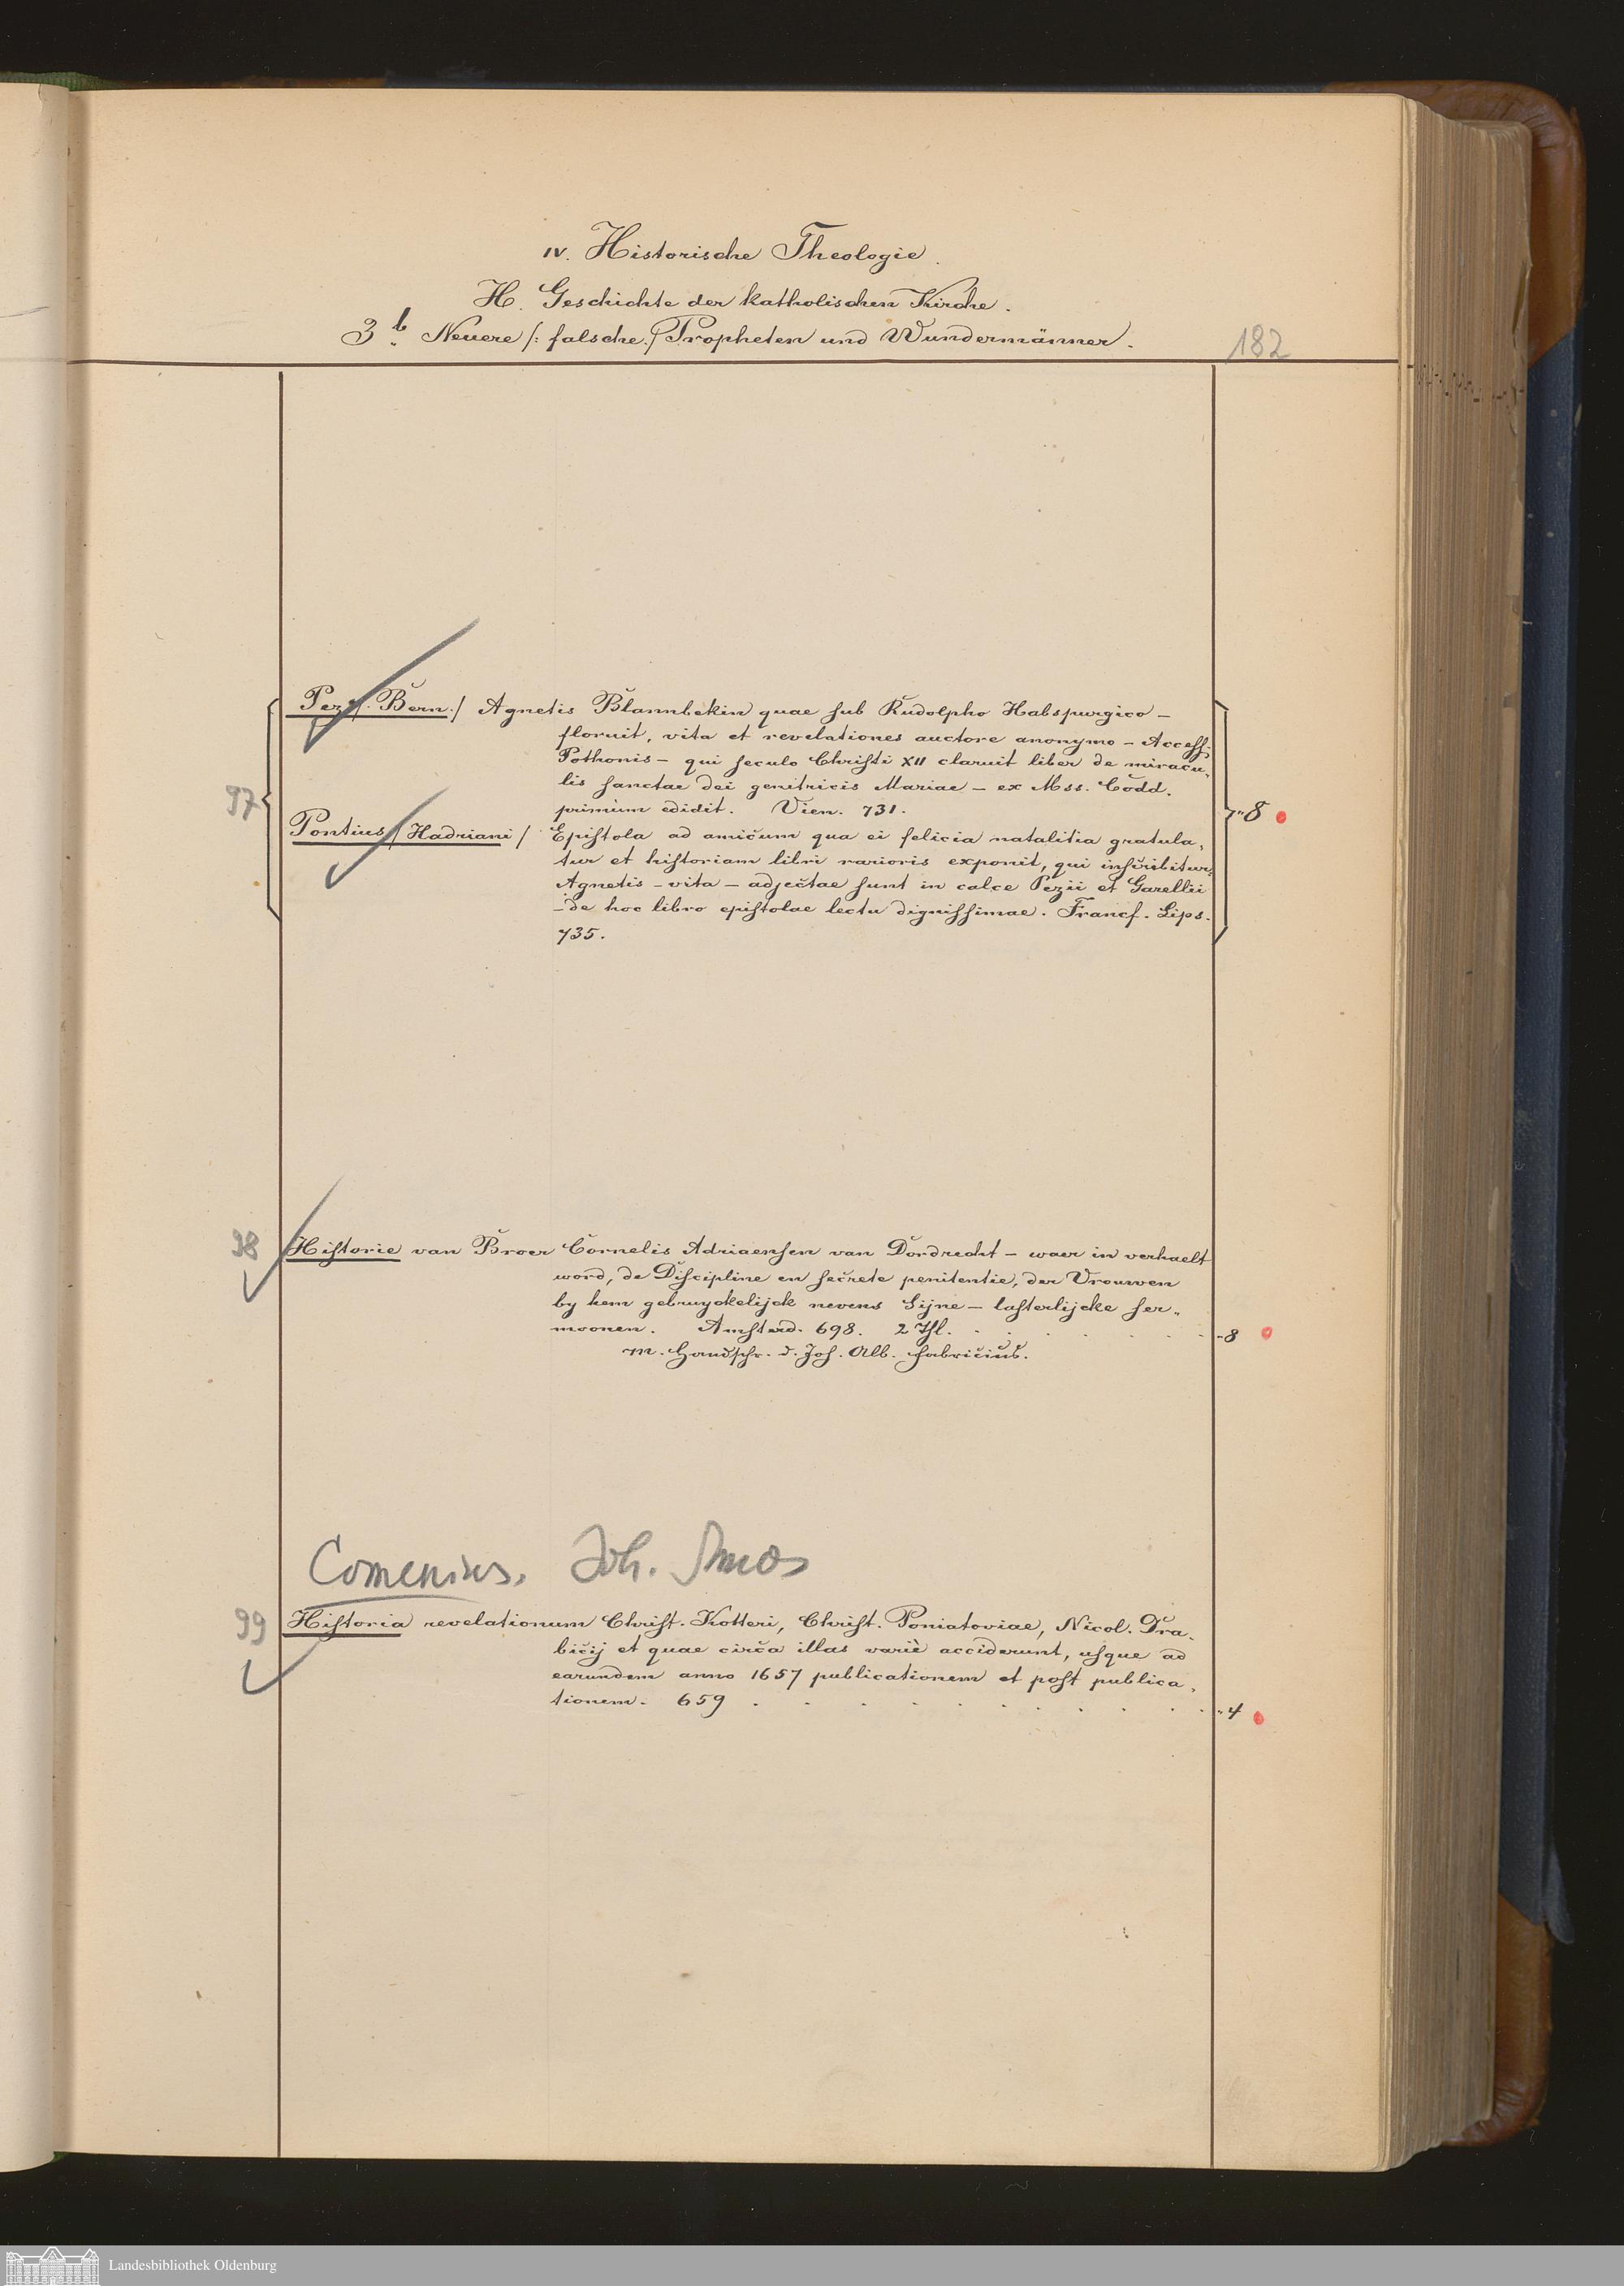 IV. Historische Theologie.
H. Geschichte der katholischen Kirche.
3b. Neuere /: falsche :/ Propheten und Wundermänner.
182
Pez /. Bern./ Agnetis Blannbekin quae sub Rudolpho Habspurgico –
floruit, vita et revelationes auctore anonymo – Access.
Pothonis – qui seculo Christi XII claruit liber de miracu„
lis sanctae dei genitricis Mariae – ex Mss. Codd.
primùm edidit. Vien. 731.
97
Pontius / Hadriani / Epistola ad amicum qua ei felicia natalitia gratula„
tur et historiam libri rarioris exponit, qui inscribitur:
Agnetis – vita – adjectae sunt in calce Pezii et Garellii
– de hoc libro epistolae lectu dignissimae. Francf. Lips.
735.
8
98
Historie van Broer Cornelis Adriaensen van Dordrecht – waer in verhaelt
word, de Discipline en secrete penitentie, der Vrouwen
by hem gebruyckelijck nevens Sijne – lasterlijcke ser„
moonen. Amsterd. 698. 2 Thl. . . . . . . „8
m. Handschr. v. Joh. Alb. Fabricius.
Comenius, Joh. Amos
99
Historia revelationum Christ. Kotteri, Christ. Poniatoviae, Nicol. Dra„
bicij et quae circa illas variè acciderunt, usque ad
earundem anno 1657 publicationem et post publica„
tionem. 659 . . . . . . . . . . „4
Landesbibliothek Oldenburg